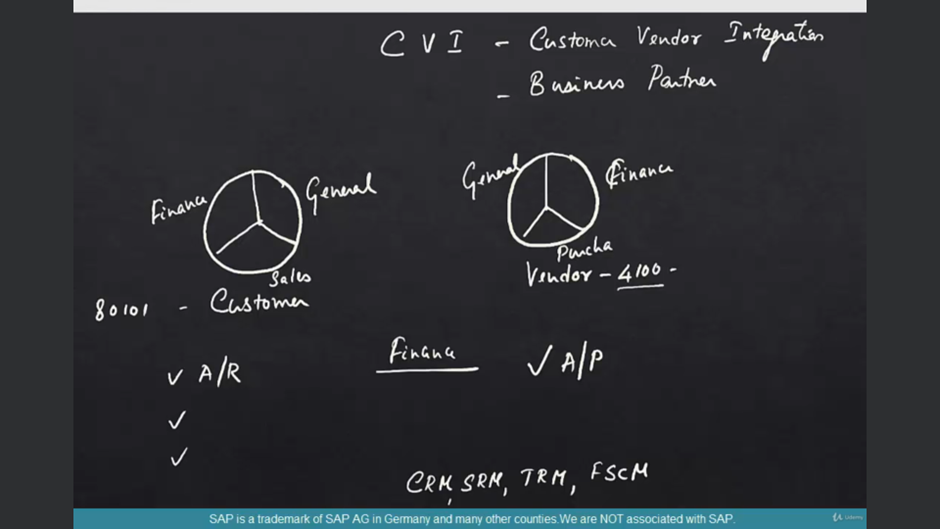 C V I - Customer Vendor Integration
- Business Partner
Finance
General
Sales
80101 - Customer
General
Finance
Purcha
Vendor - 4100 -
Finance
✓ A/R
✓ A/P
✓
✓
CRM, SRM, TRM, FSCM
SAP is a trademark of SAP AG in Germany and many other counties.We are NOT associated with SAP.
Udemy